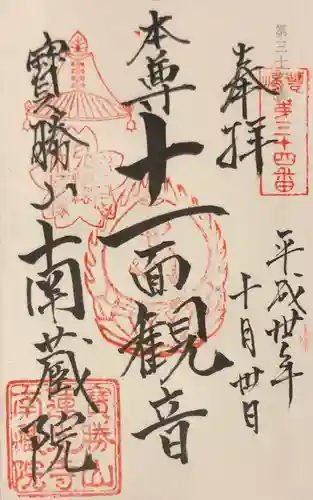 奉拝
第三十四番
平成廿年
十月廿日
本尊十一面観音
寳勝山南蔵院
寳勝山
蓮光寺
南蔵院